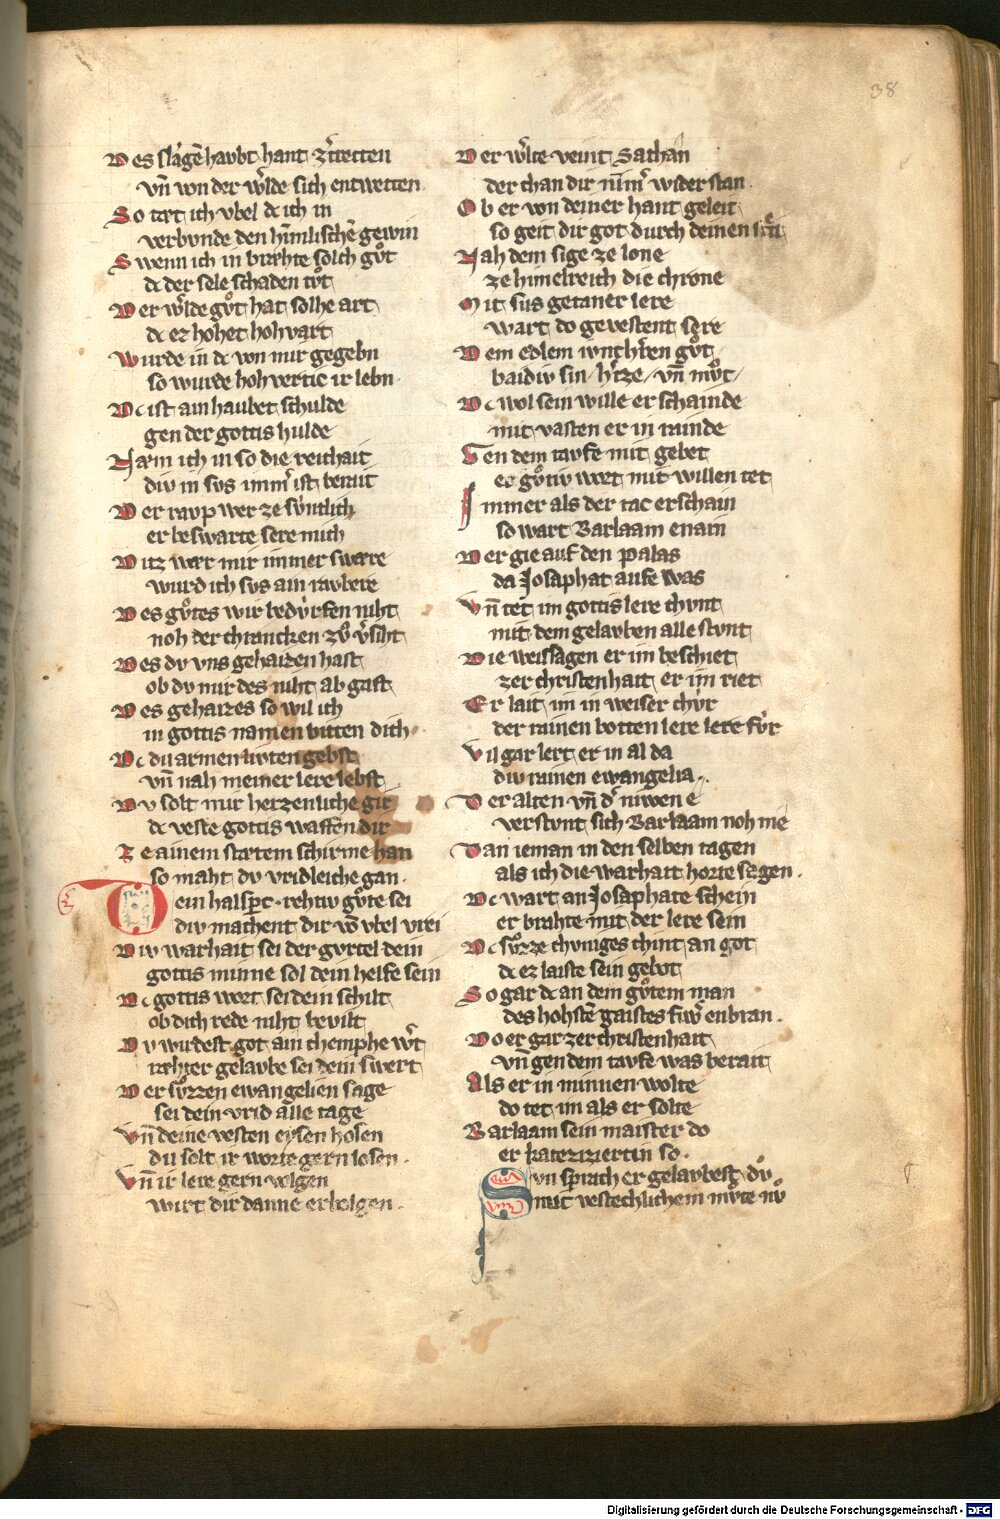 38
Des slangē havbt hant zˀtretten
vn̄ von der wˀlde sich entwetten
So tæt ich vbel dc ich in
verbvnde den hīmlischē gewin
Swenn ich in bræhte solch gůt
dc der sele schaden tůt
Der wˀlde gůt hat solhe art
dc ez hohet hohvart
Wurde in dc von mir gegebn
so wurde hohvertic ir lebn
Dc ist ain haubet schulde
gen der gottis hulde
Næm ich in so die reichait
div in svs immˀ ist berait
Der ravp wer ze svntlich
er beswarte sere mich
Ditz wær mir immer swære
wurd ich svs ain ravbere
Des gůtes wir bedurfen niht
noh der chrancken zů vˀsiht
Des dv vns gehaizen hast
ob dv mir des niht ab gast
Des gehaizes so wil ich
in gottis namen bitten dich
Dc du armen livten gebst
vn̄ nah meiner lere lebst
Dv solt mir herzenliche gir
dc veste gottis waffen dir
Ze ainem stætem schirme han
so maht dv vridleiche gan.
Dein halspˀc rehtiv gůte sei
div machent dir vō vbel vrei
Div warhait sei der gvrtel dein
gottis minne sol dein helfe sein
Dc gottis wort sei dein schilt
ob dich rede niht bevilt
Dv wirdest got ain chemphe wˀt
rehter gelavbe sei dein swert
Der sůzzen ewangelien sage
sei dein vrid alle tage
Vn̄ deine vesten eysen hosen
du solt ir worte gern losen.
Vn̄ ir lere gern volgen
wirt dir danne erbolgen.
Der wˀlte veint Sathan
der chan dir nimˀ widerstan
Ob er von deiner hant geleit
so geit dir got durch deinen
Nah dem sige ze lone
ze himelreich die chrone
Mit sus getaner lere
wart do gevestent sere
Dem edlem ivnchˀren gůt
baidiv sin / hˀtze / vn̄ můt /
Dc wol sein wille erschainde
mit vasten er in rainde
Gen dem tavfe mit gebet
er gůtiv wort mit willen tet
Immer als der tac erschain
so wart Barlaam enain
Der gie auf den palas
da Josaphat aufe was
Vn̄ tet im gottis lere chvnt
mit dem gelavben alle stvnt
Die weissagen er im beschiet
zer christenhait er im riet
Er lait im in weiser chvr
der rainen botten lere lere fvr
Vil gar lert er in al da
div rainen ewangelia.
Der alten vn̄ dˀ niwen e
verstvnt sich Barlaam noh me
Dan ieman in den selben tagen
als ich die warhait horte sagen.
Dc wart an Josaphate schein
er brahte mit der lere sein
Dc sůzze chvniges chint an got
dc ez laiste sein gebot
So gar dc an dem gůtem man
des hohstē gaistes fivr enbran.
Do er gar zer christenhait
vn̄ gen dem tavfe was berait
Als er in minnen wolte
do tet im als er solte
Barlaam sein maister do
er kateziziertin so.
Svn sprach er gelavbest dv
mit vestechlichem mvte nv
Digitalisierung gefördert durch die Deutsche Forschungsgemeinschaft - DFG